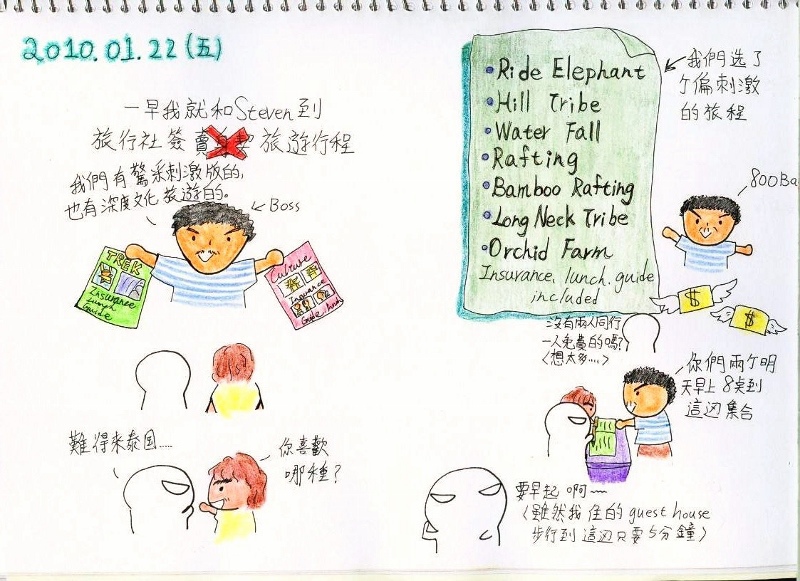 2010.01.22(五)
一早我就和Steven到
旅行社簽賣身契旅遊行程
我們有驚采刺激版的,
也有深度文化旅遊的。
Boss
TREK
Insurance
Lunch
Guide
Culture
Insurance
Guide
難得來泰国....
你喜歡
哪種?
我們选了
个偏刺激
的旅程
Ride Elephant
Hill Tribe
Water Fall
Rafting
Bamboo Rafting
Long Neck Tribe
Orchid Farm
Insurance, lunch, guide
included
800Ba
$
$
沒有兩人同行
一人免費的嗎?
(想太多....)
你們兩个明
天早上8桌到
這边集合
要早起啊~~
(雖然我住的guest house
步行到這边只要5分鐘)